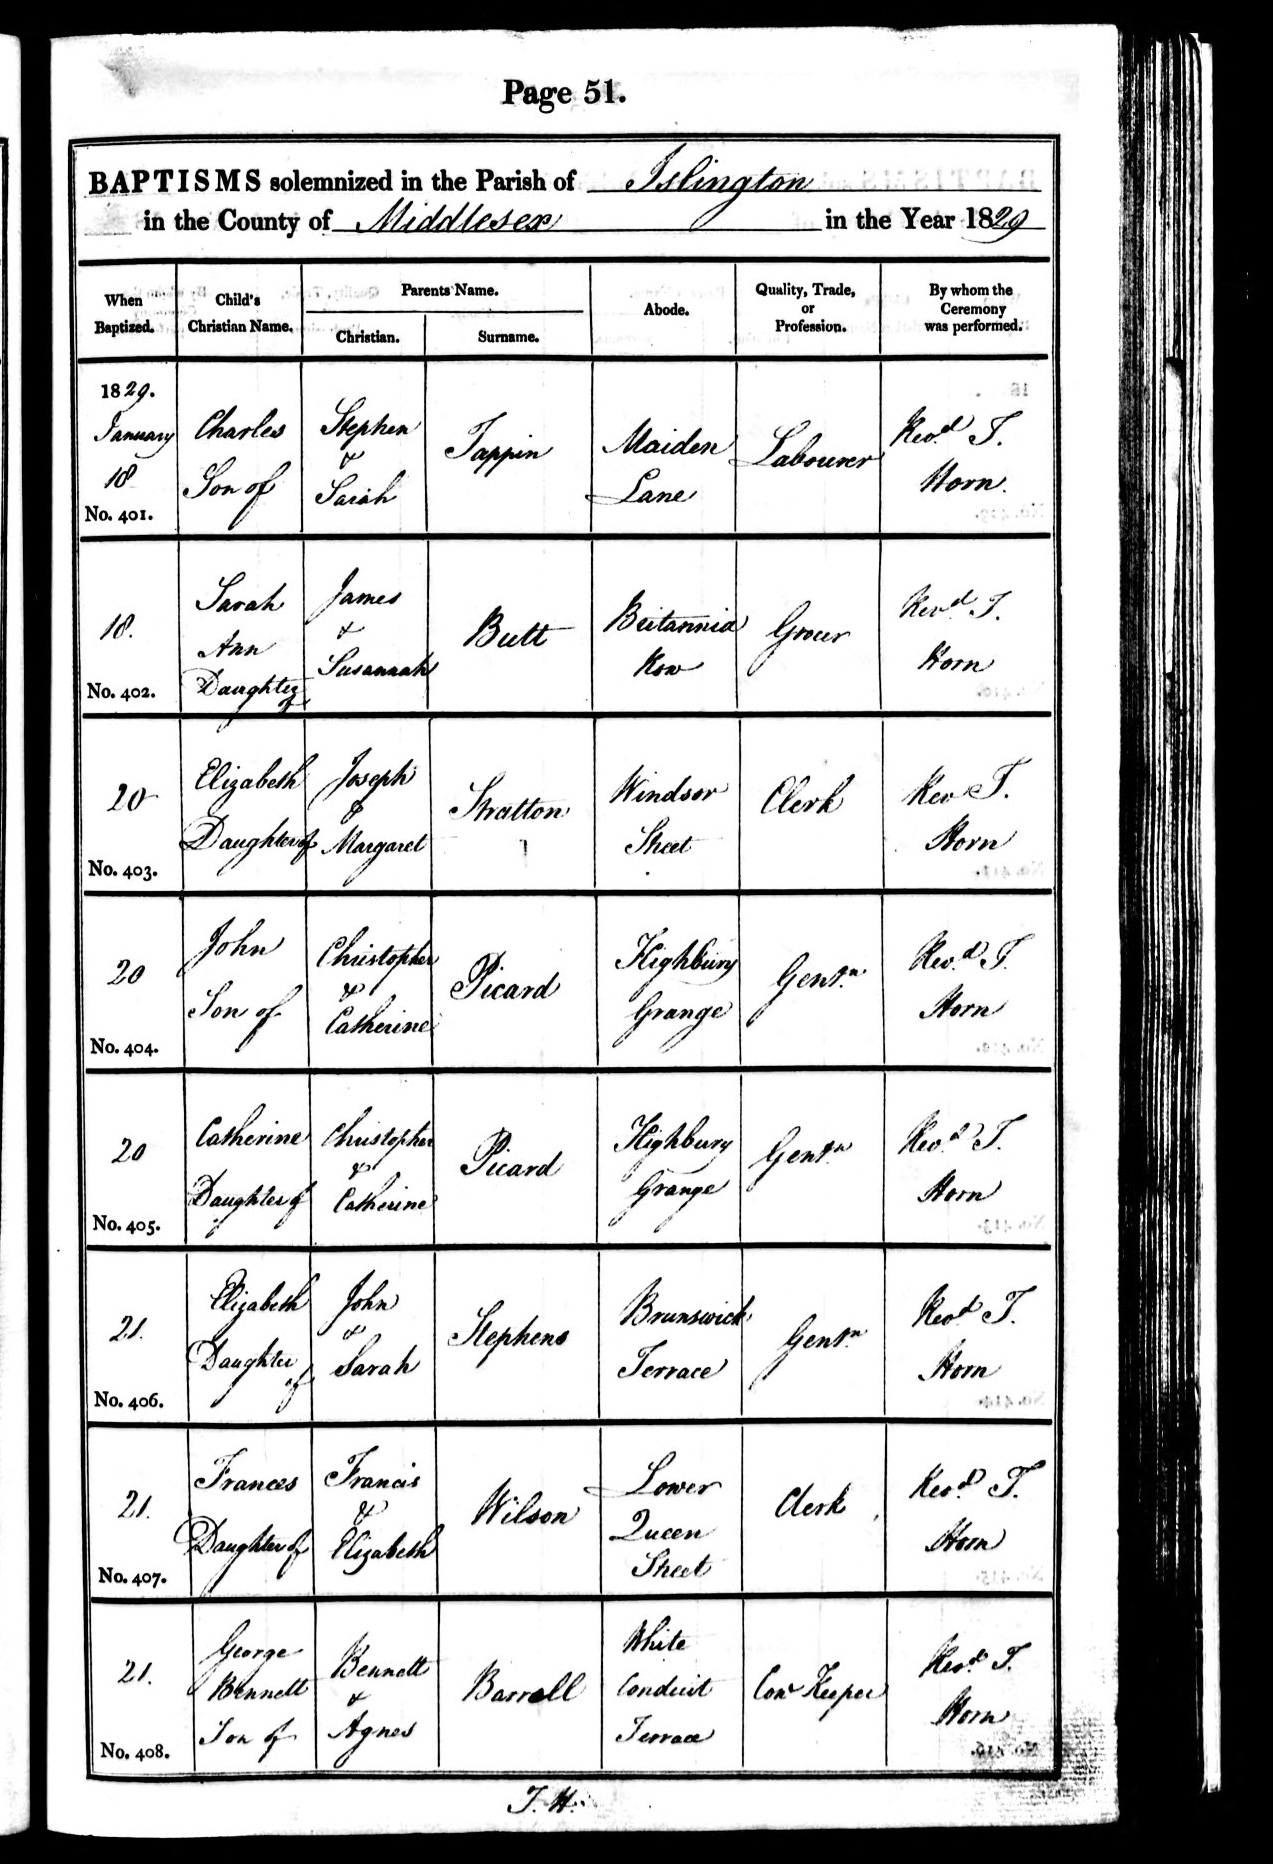 Page 51.
BAPTISMS solemnized in the Parish of Islington
in the County of Middlesex in the Year 1829
When
Baptized.
Child's
Christian Name.
Parents Name.
Christian.
Surname.
Abode.
Quality, Trade,
or
Profession.
By whom the
Ceremony
was performed.
1829.
January
18
No. 401.
Charles
Son of
Stephen
&
Sarah
Tappin
Maiden
Lane
Labourer
Revd. T.
Horn.
18.
No. 402.
Sarah
Ann
Daughter
of
James
&
Susannah
Butt
Britannia
Row
Grocer
Revd. T.
Horn
20
No. 403.
Elizabeth
Daughter of
Joseph
&
Margaret
Stratton
Windsor
Street
Clerk
Rev T.
Horn
20
No. 404.
John
Son of
Christopher
&
Catherine
Picard
Highbury
Grange
Gentn.
Revd. T.
Horn
20
No. 405.
Catherine
Daughter of
Christopher
&
Catherine
Picard
Highbury
Grange
Gentn.
Revd. T.
Horn
21.
No. 406.
Elizabeth
Daughter
of
John
&
Sarah
Stephens
Brunswick
Terrace
Gentn.
Revd. T.
Horn
21.
No. 407.
Frances
Daughter of
Francis
&
Elizabeth
Wilson
Lower
Queen
Street
Clerk
Revd. T.
Horn
21.
No. 408.
George
Bennett
Son of
Bennett
&
Agnes
Barrell
White
Conduit
Terrace
Cow Keeper
Revd. T.
Horn
T. H.